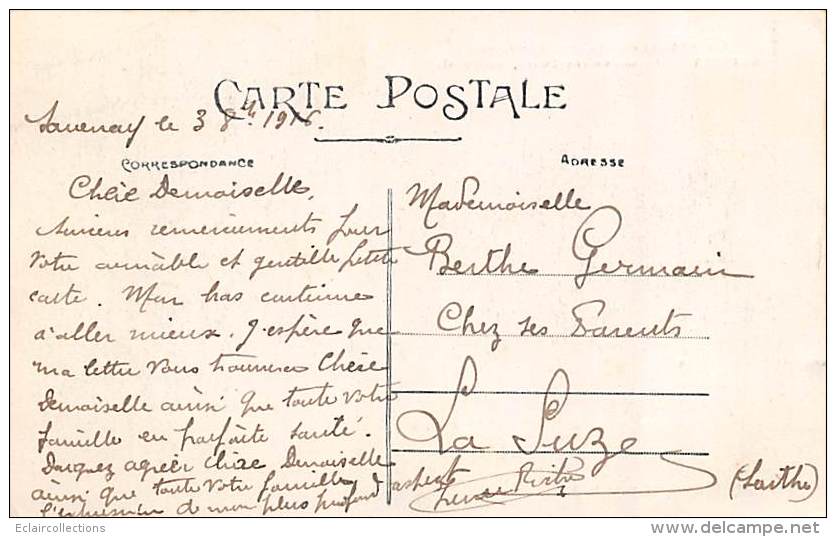 CARTE POSTALE
Savenay le 3 8bre 1916.
CORRESPONDANCE
Chère Demoiselle,
Sincères remerciements pour
votre aimable et gentille petite
carte. Mon bras continue
d'aller mieux. J'espère que
ma lettre vous trouvera Chère
Demoiselle ainsi que toute votre
famille en parfaite santé.
Daignez agréer Chère Demoiselle
ainsi que toute votre famille
l'expression de mon plus profond
respect
ADRESSE
Mademoiselle
Berthe Germain
Chez ses Parents
La Suze
(Sarthe)
Eclaircollections
www.delcampe.net